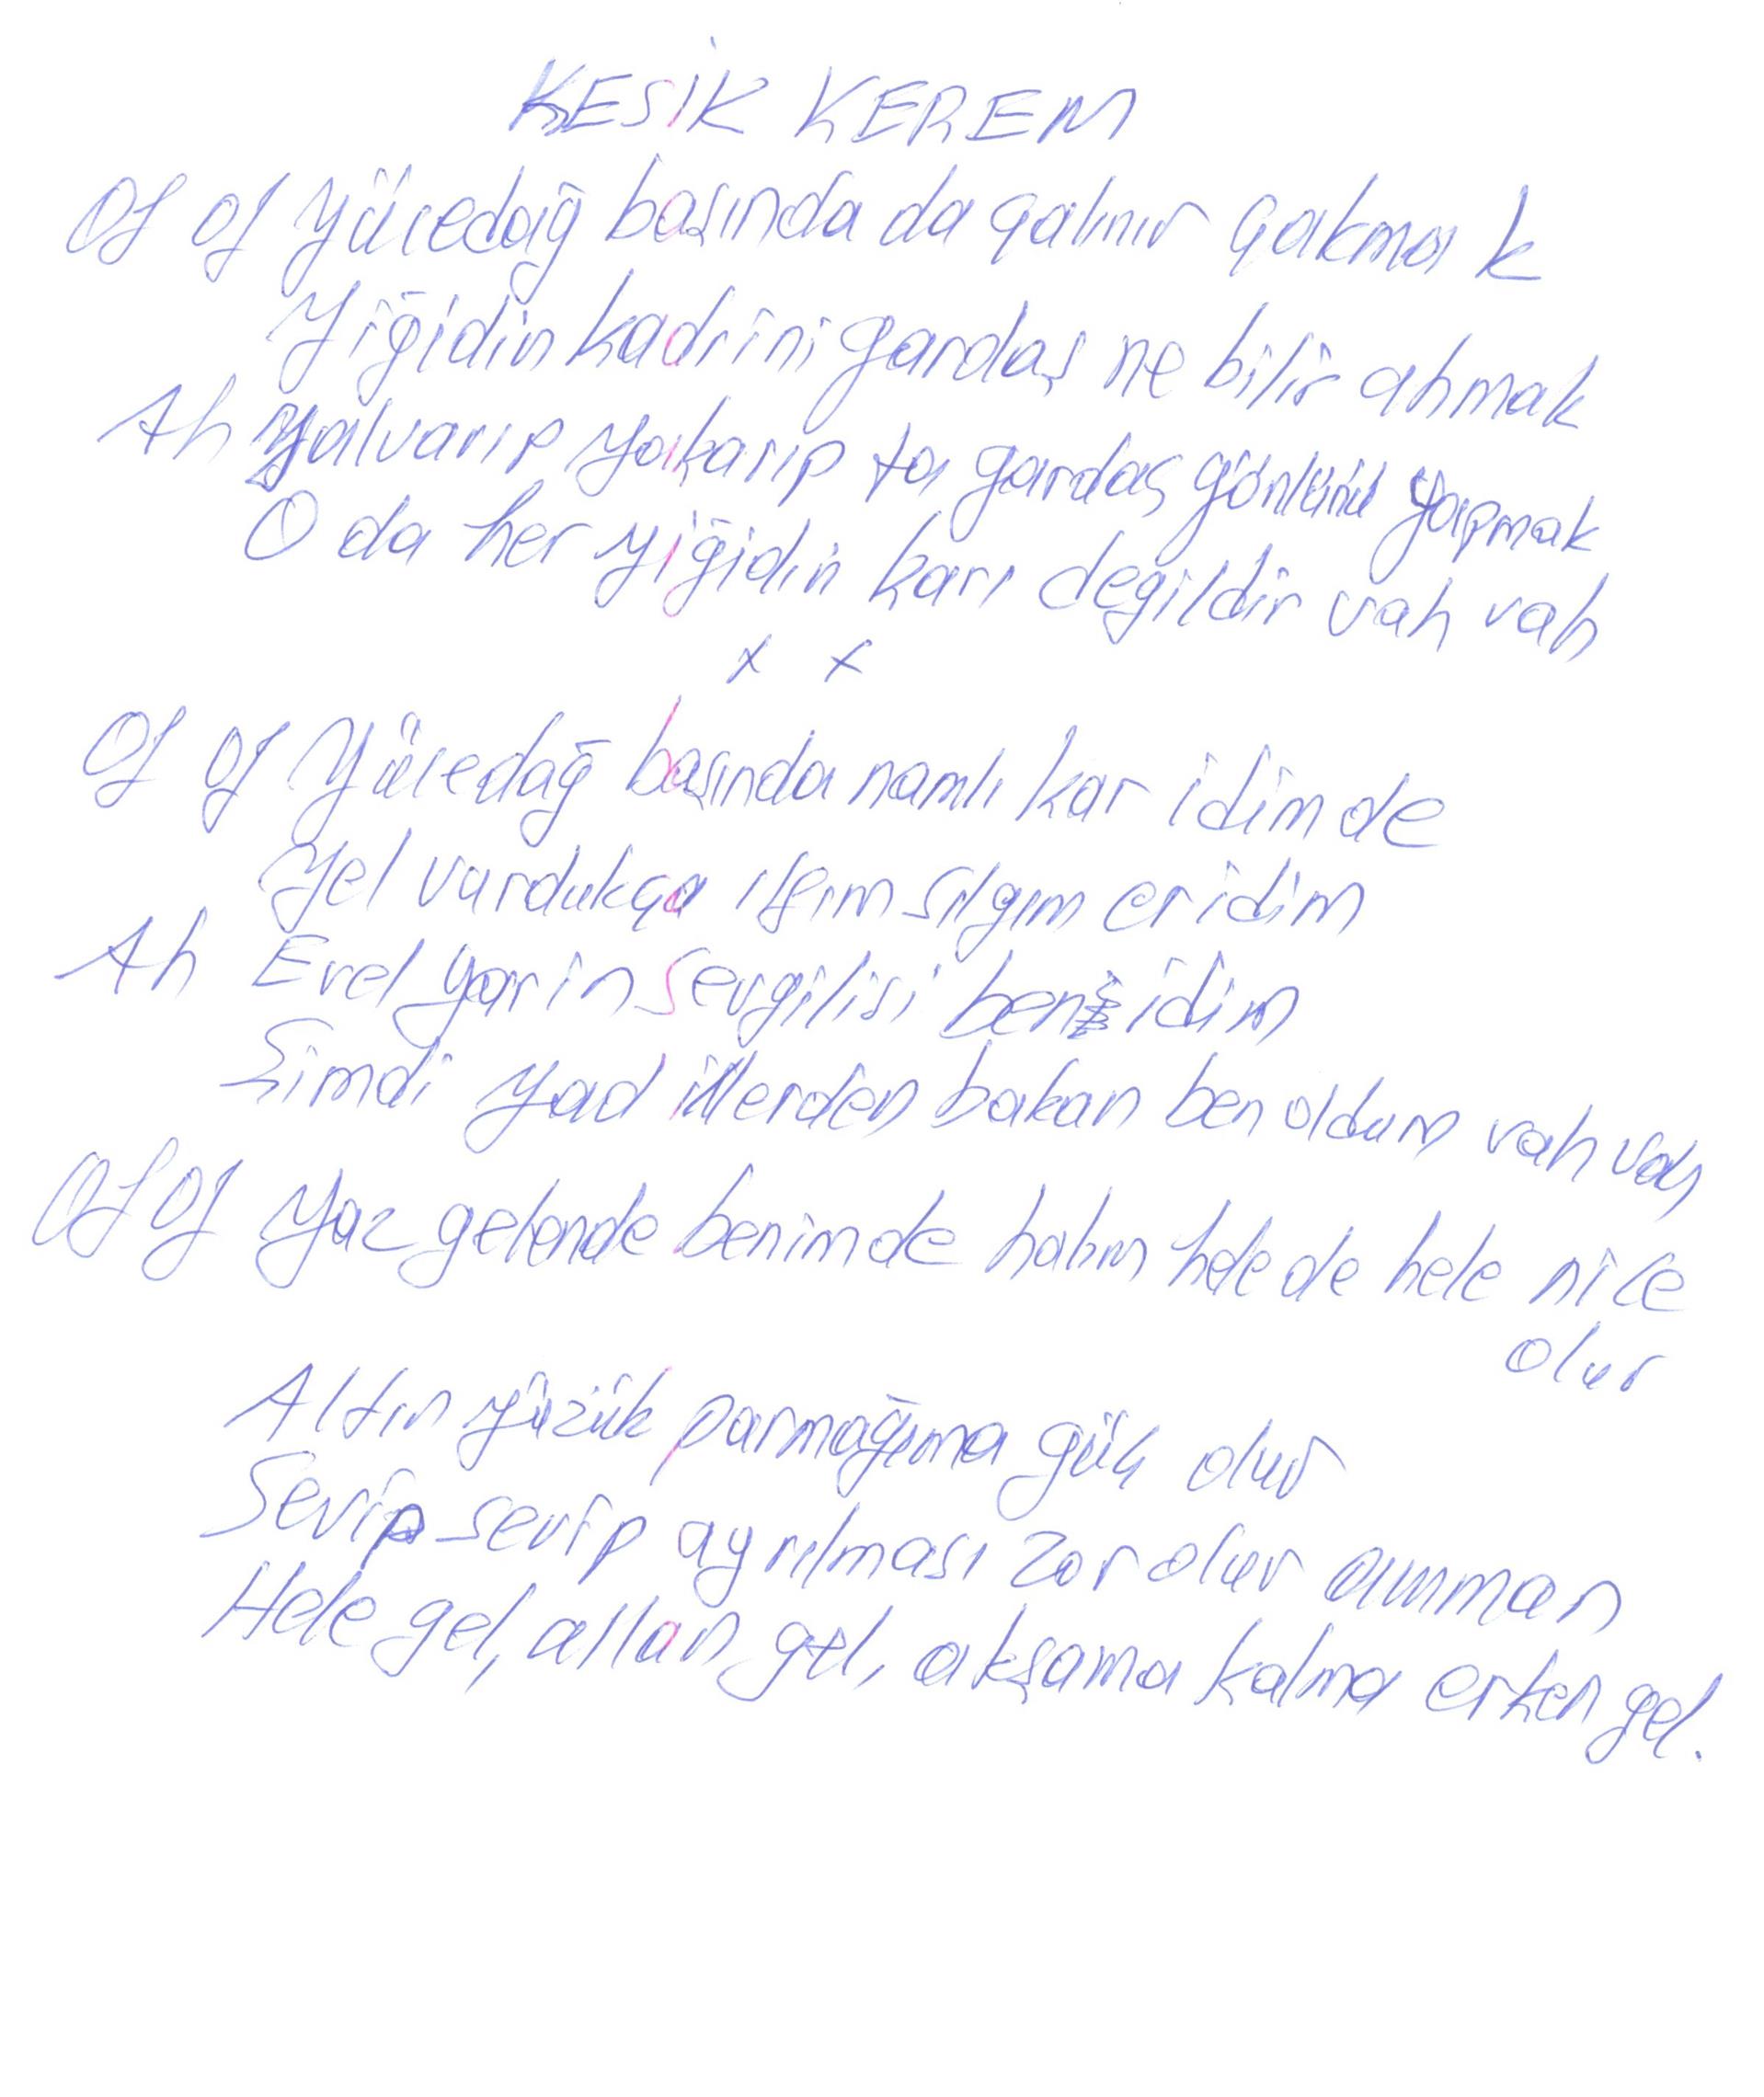 KESİK KEREM
Of of Yücedağ başında da çalınır çakmak
Yiğidin kadrini gardaş ne bilir ahmak
Ah Yalvarıp yakarıp ta gardaş gönlünü yapmak
O da her yiğidin karı değildir vah vah
x x
Of of Yücedağ başında namlı kar idim de
Yel vurdukça ılgım sılgım eridim
Ah Evel yarin sevgilisi ben idim
Şimdi yad illerden bakan ben oldum vah vah
Of of Yaz gelende benimde halım hele de hele nice
olur
Altın yüzük parmağıma güç olur
Sevip sevip ayrılması zor olur amman
Hele gel, allan gel, akşama kalma erken gel.